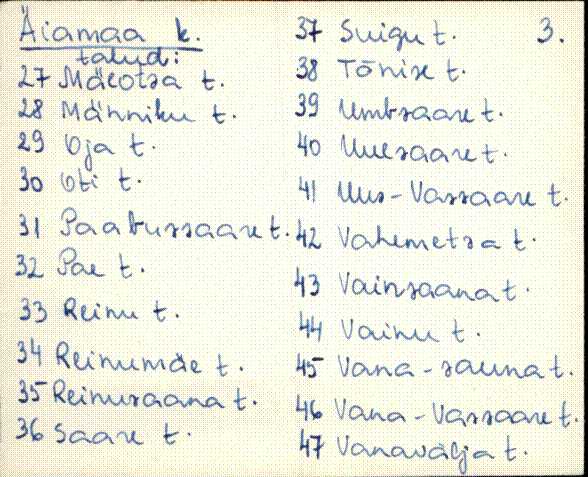 Äiamaa k.
talud:
27 Mäeotsa t.
28 Männiku t.
29 Oja t.
30 Oti t.
31 Paabussaare t.
32 Pae t.
33 Reinu t.
34 Reinumäe t.
35 Reinusaana t.
36 Saare t.
3.
37 Suigu t.
38 Tõnise t.
39 Umbsaare t.
40 Uuesaare t.
41 Uus-Vassaare t.
42 Vahemetsa t.
43 Vainsaana t.
44 Vainu t.
45 Vana-sauna t.
46 Vana-Vassaare t.
47 Vanavälja t.